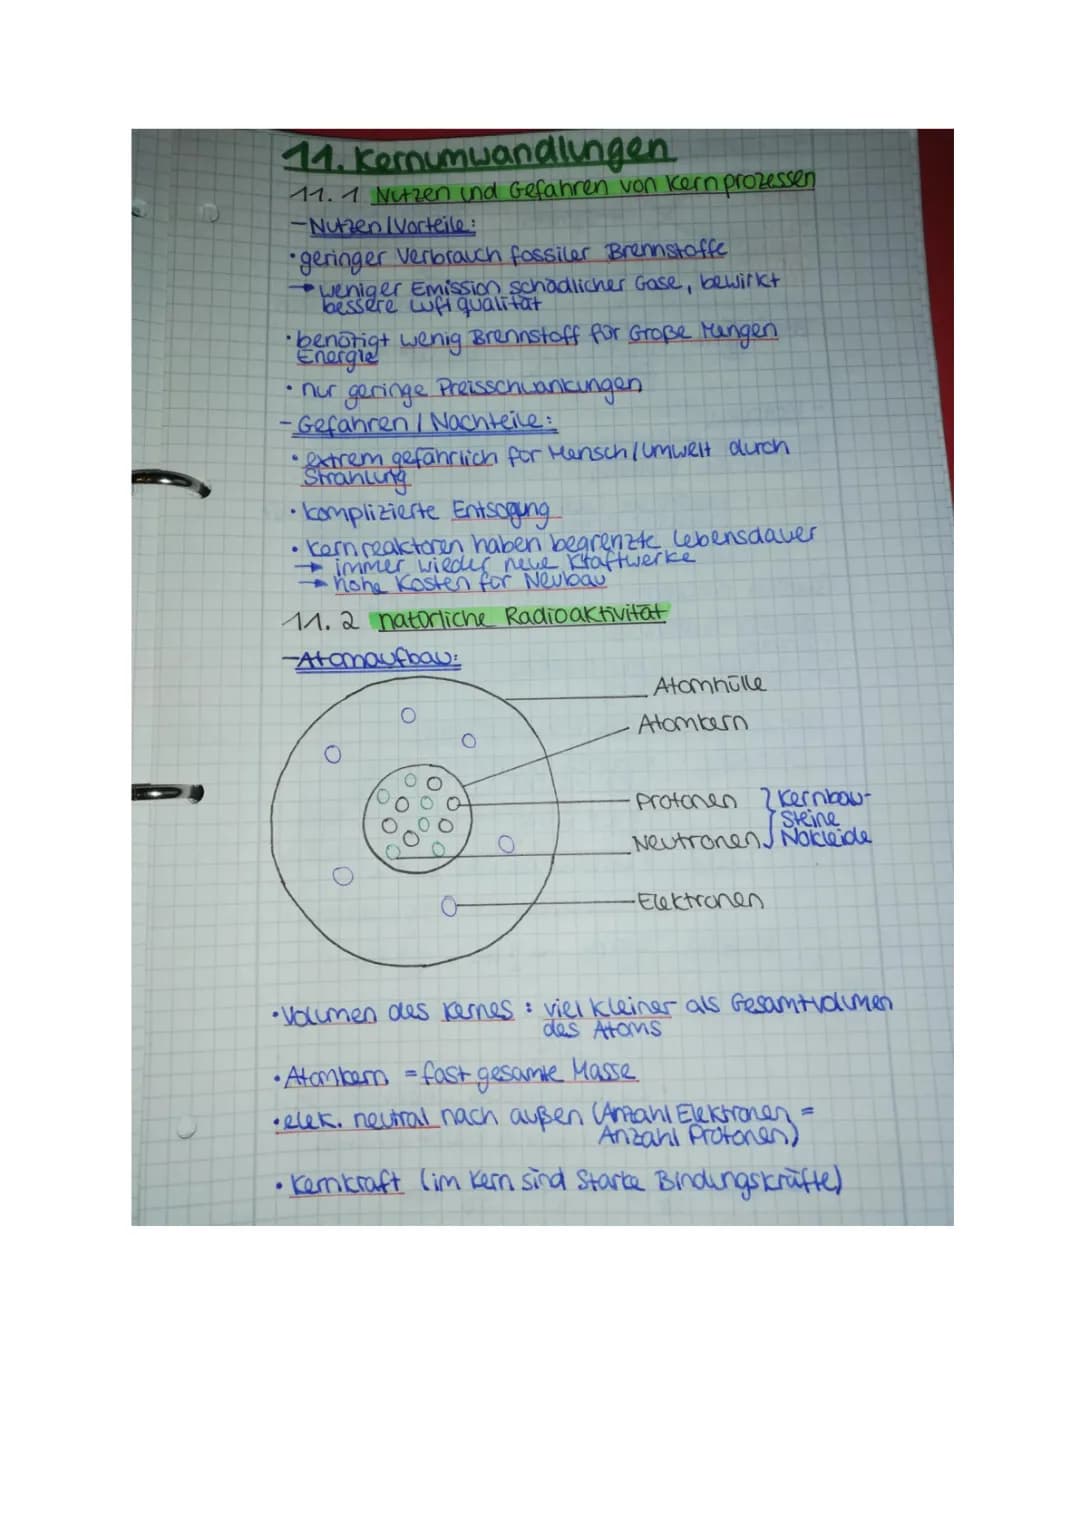 11. Kernumwandlungen
11. 1 Nutzen und Gefahren von Kernprozessen
- Nutzen/Vorteile:
• geringer Verbrauch fossiler Brennstoffe
→ weniger Emission schädlicher Gase, bewirkt
bessere Luftqualität
• benötigt wenig Brennstoff für Große Mengen
Energie
• nur geringe Preisschwankungen
- Gefahren / Nachteile:
• extrem gefährlich für Mensch/Umwelt durch
Strahlung
• komplizierte Entsogung
• Kernreaktoren haben begrenzte Lebensdauer
→ immer wieder neue Kraftwerke
→ hohe Kosten für Neubau
11. 2 natürliche Radioaktivität
- Atomaufbau:
Atomhülle
Atomkern
Protonen } Kernbau-
steine
Neutronen Nukleide
Elektronen
• Volumen des Kernes : viel kleiner als Gesamtvolumen
des Atoms
• Atomkern = fast gesamte Masse
• elek. neutral nach außen (Anzahl Elektronen =
Anzahl Protonen)
• Kernkraft (im Kern sind starke Bindungskräfte)